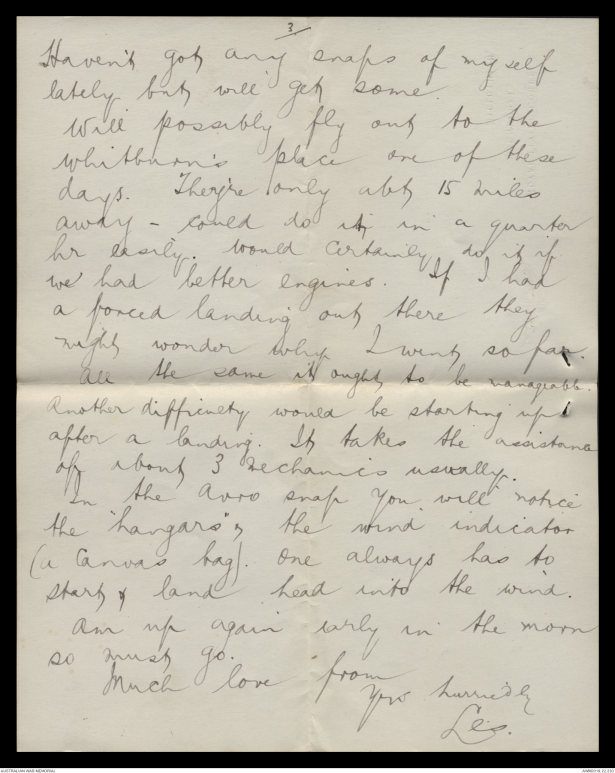 3
Haven't got any snaps of myself
lately but will get some.
Will possibly fly out to the
Whitburn's place one of these
days. They're only abt 15 miles
away - could do it in a quarter
hr easily. Would certainly do it if
we had better engines. If I had
a forced landing out there they
might wonder why I went so far.
All the same it ought to be manageable.
Another difficulty would be starting up
after a landing. It takes the assistance
of about 3 mechanics usually.
In the Avro snap you will notice
the "hangars" & the wind indicator
(a canvas bag). One always has to
start & land head into the wind.
Am up again early in the morn
so must go.
Much love from
Yrs hurriedly
Les.
AUSTRALIAN WAR MEMORIAL